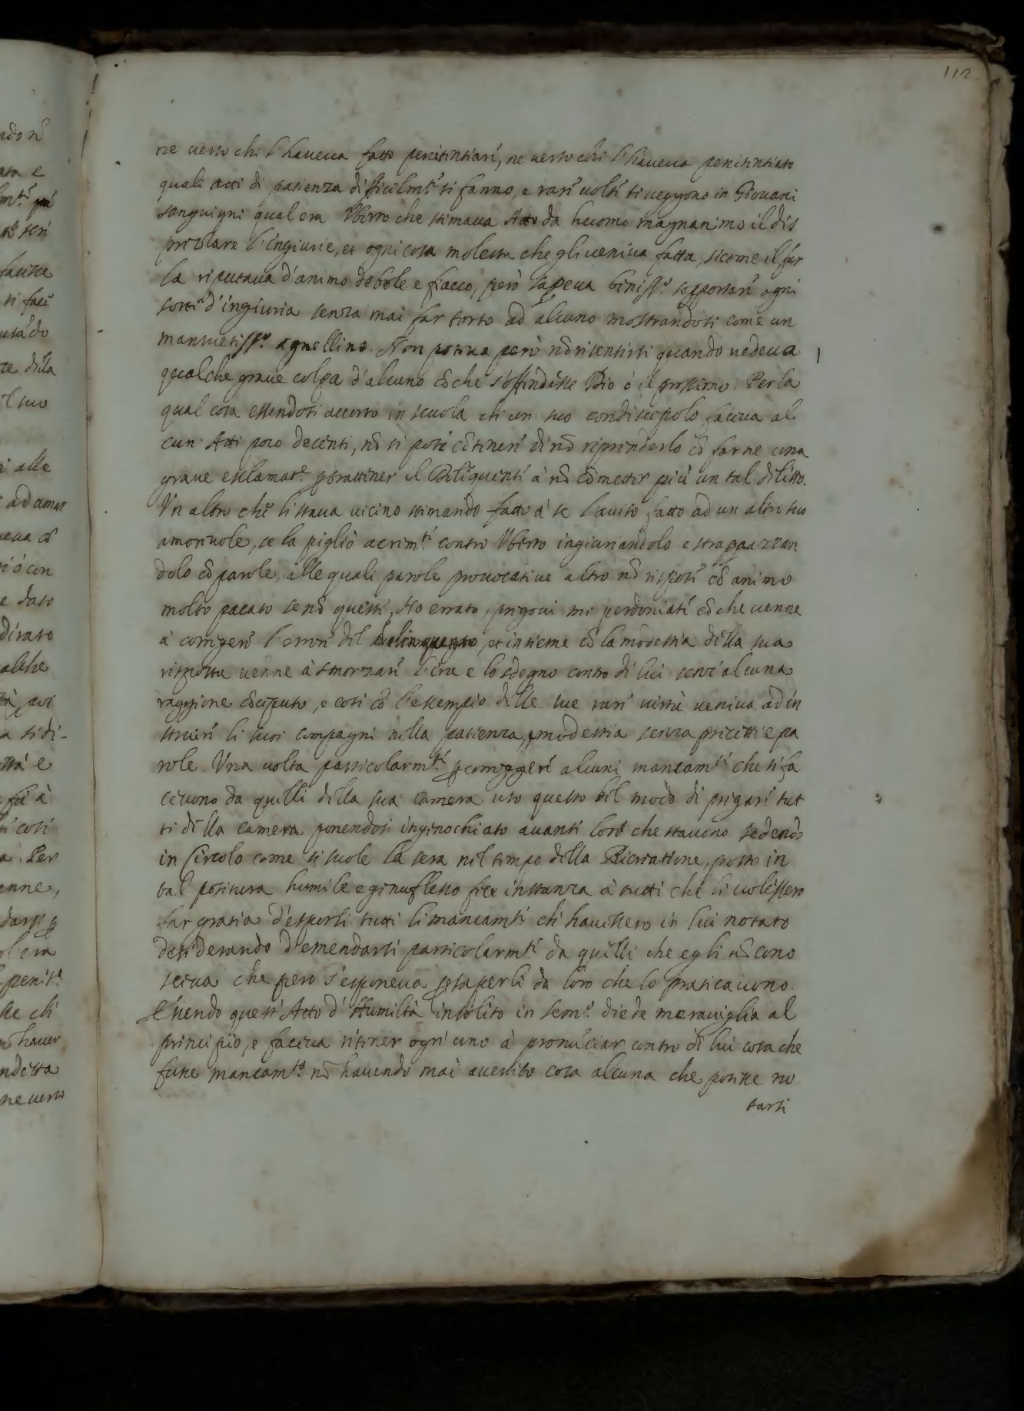 112
ne verso chi l'haveva fatto penitintiari, ne verso chi l'haveva penitintiato
quali atti di patienza dificilmt̃ si fanno, e rari volti si veggono in Giovani
sanguigni qual era Uberto che stimava Atto da huomo magnanimo il dis
prezzare l'ingiurie, et ogni cosa molesta che gli veniva fatta, sicome il far
la riputava d'animo debole e fiacco, però sapeva biniss.º sopportari ogni
sorti d'ingiuria senza mai far torto ad alcuno mostrandosi come un
mansuetiss.º agnellino. Non poteva però nõ risentirsi quando vedeva
qualche grave colpa d'alcuno cõ che s'offindesse Dio ó il prossimo. Per la
qual cosa essendosi accorto in scuola ch un suo condiscepolo faceva al
cuni Atti poco decenti, nõ si poté cõtineri di nõ riprinderlo cõ farne una
grave esclamat.e p rattiner il Deliquenti á nõ cõmetter piú un tal delitto.
Un altro che li stava vicino stimando fatto á se l'aviso fatto ad un altro suo
amorivole, se la piglió acrimti contro Uberto ingiuriandolo e strapaazzan
dolo cõ parole, alle quali parole provocative altro nõ rispose cõ animo
molto pacato se nõ questi, Ho errato, prigovi mi perdoniati cõ che venne
á corrigeri l'errori del delinquente, et insieme cõ la modestia della sua
risposta venne á smorzari l'ira e lo sdegno contro di lui senz'alcuna
raggione cõceputo, e cosi cõ l'essempio delle sue rari virtù veniva ad in
struiri li suoi compagni nella patienza, e modestia senza pricetti e pa
role. Una volta particolarmti p corriggeri alcuni mancamti che si fa
cevono da quilli della sua camera usó questo bel modo di prigari tut
ti della camera ponendosi inginochiato avanti loro che stavono sedendo
in Circolo come si suole la sera nel tempo della Ricreattione, posto in
tal positura humile e genuflesso fece instanza á tutti che li volissero
far gratia d'esporli tutti li mancamti ch'havessero in lui notato
desiderando d'emendarsi particolarmti da quilli che egli nõ cono
sceva che però s'esponeva p saperli da loro che lo praticavono.
Essendo quest'Atto d'Humiltà insolito in Sem.º diede meraviglia al
principio, e faceva ritiner ogni uno á pronuciar contro di lui cosa che
fusse mancamto nõ havendo mai avertito cosa alcuna che potesse no
tarsi